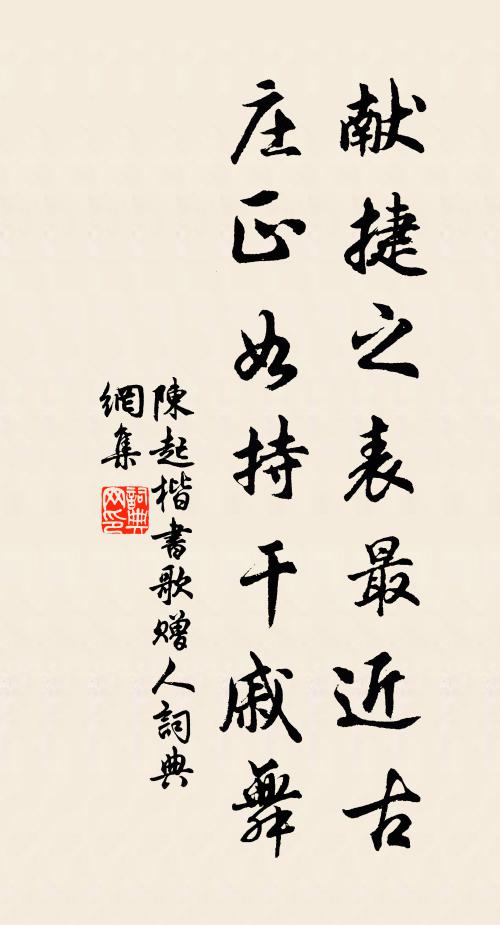 献捷之表最近古
庄正如持干戚舞
陳起楷書歌赠人詞典
網集
詞典
网印